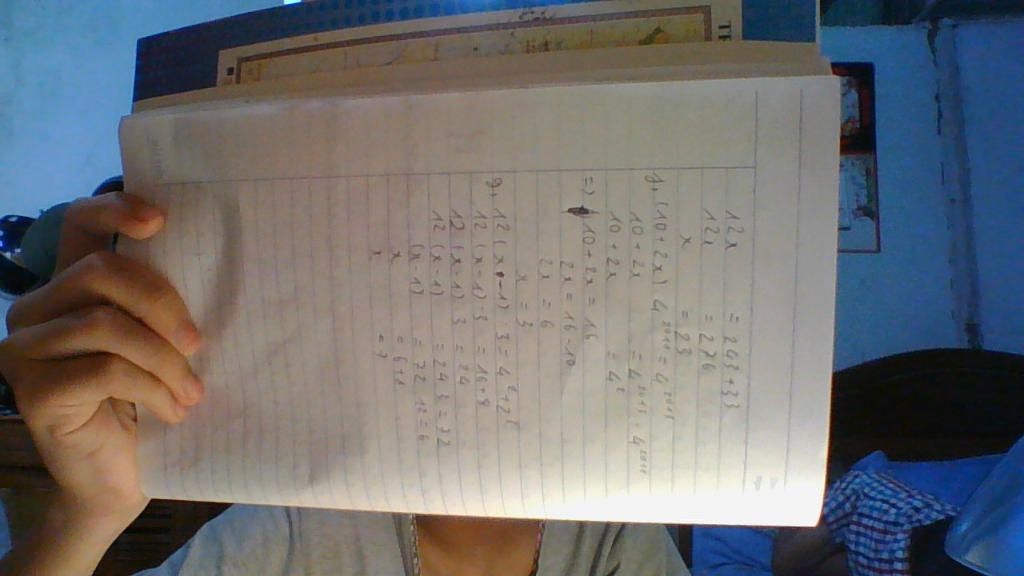 12x = 243+33
12x = 276
x = 23
f, (10 + 2x) 4²⁰¹¹ = 4²⁰¹³
10 + 2x = 4²⁰¹³ : 4²⁰¹¹
10 + 2x = 4²
=> 10 + 2x = 16
2x = 16 - 10
2x = 6
x = 3
g, 12 (x - 1) : 3 = 4² + 2³
12 (x - 1) : 3 = 16 + 8
12 (x - 1) : 3 = 24
12 (x - 1) = 24 . 3 = 72
(x - 1) = 72 : 12 = 6
x = 6 + 1
x = 7